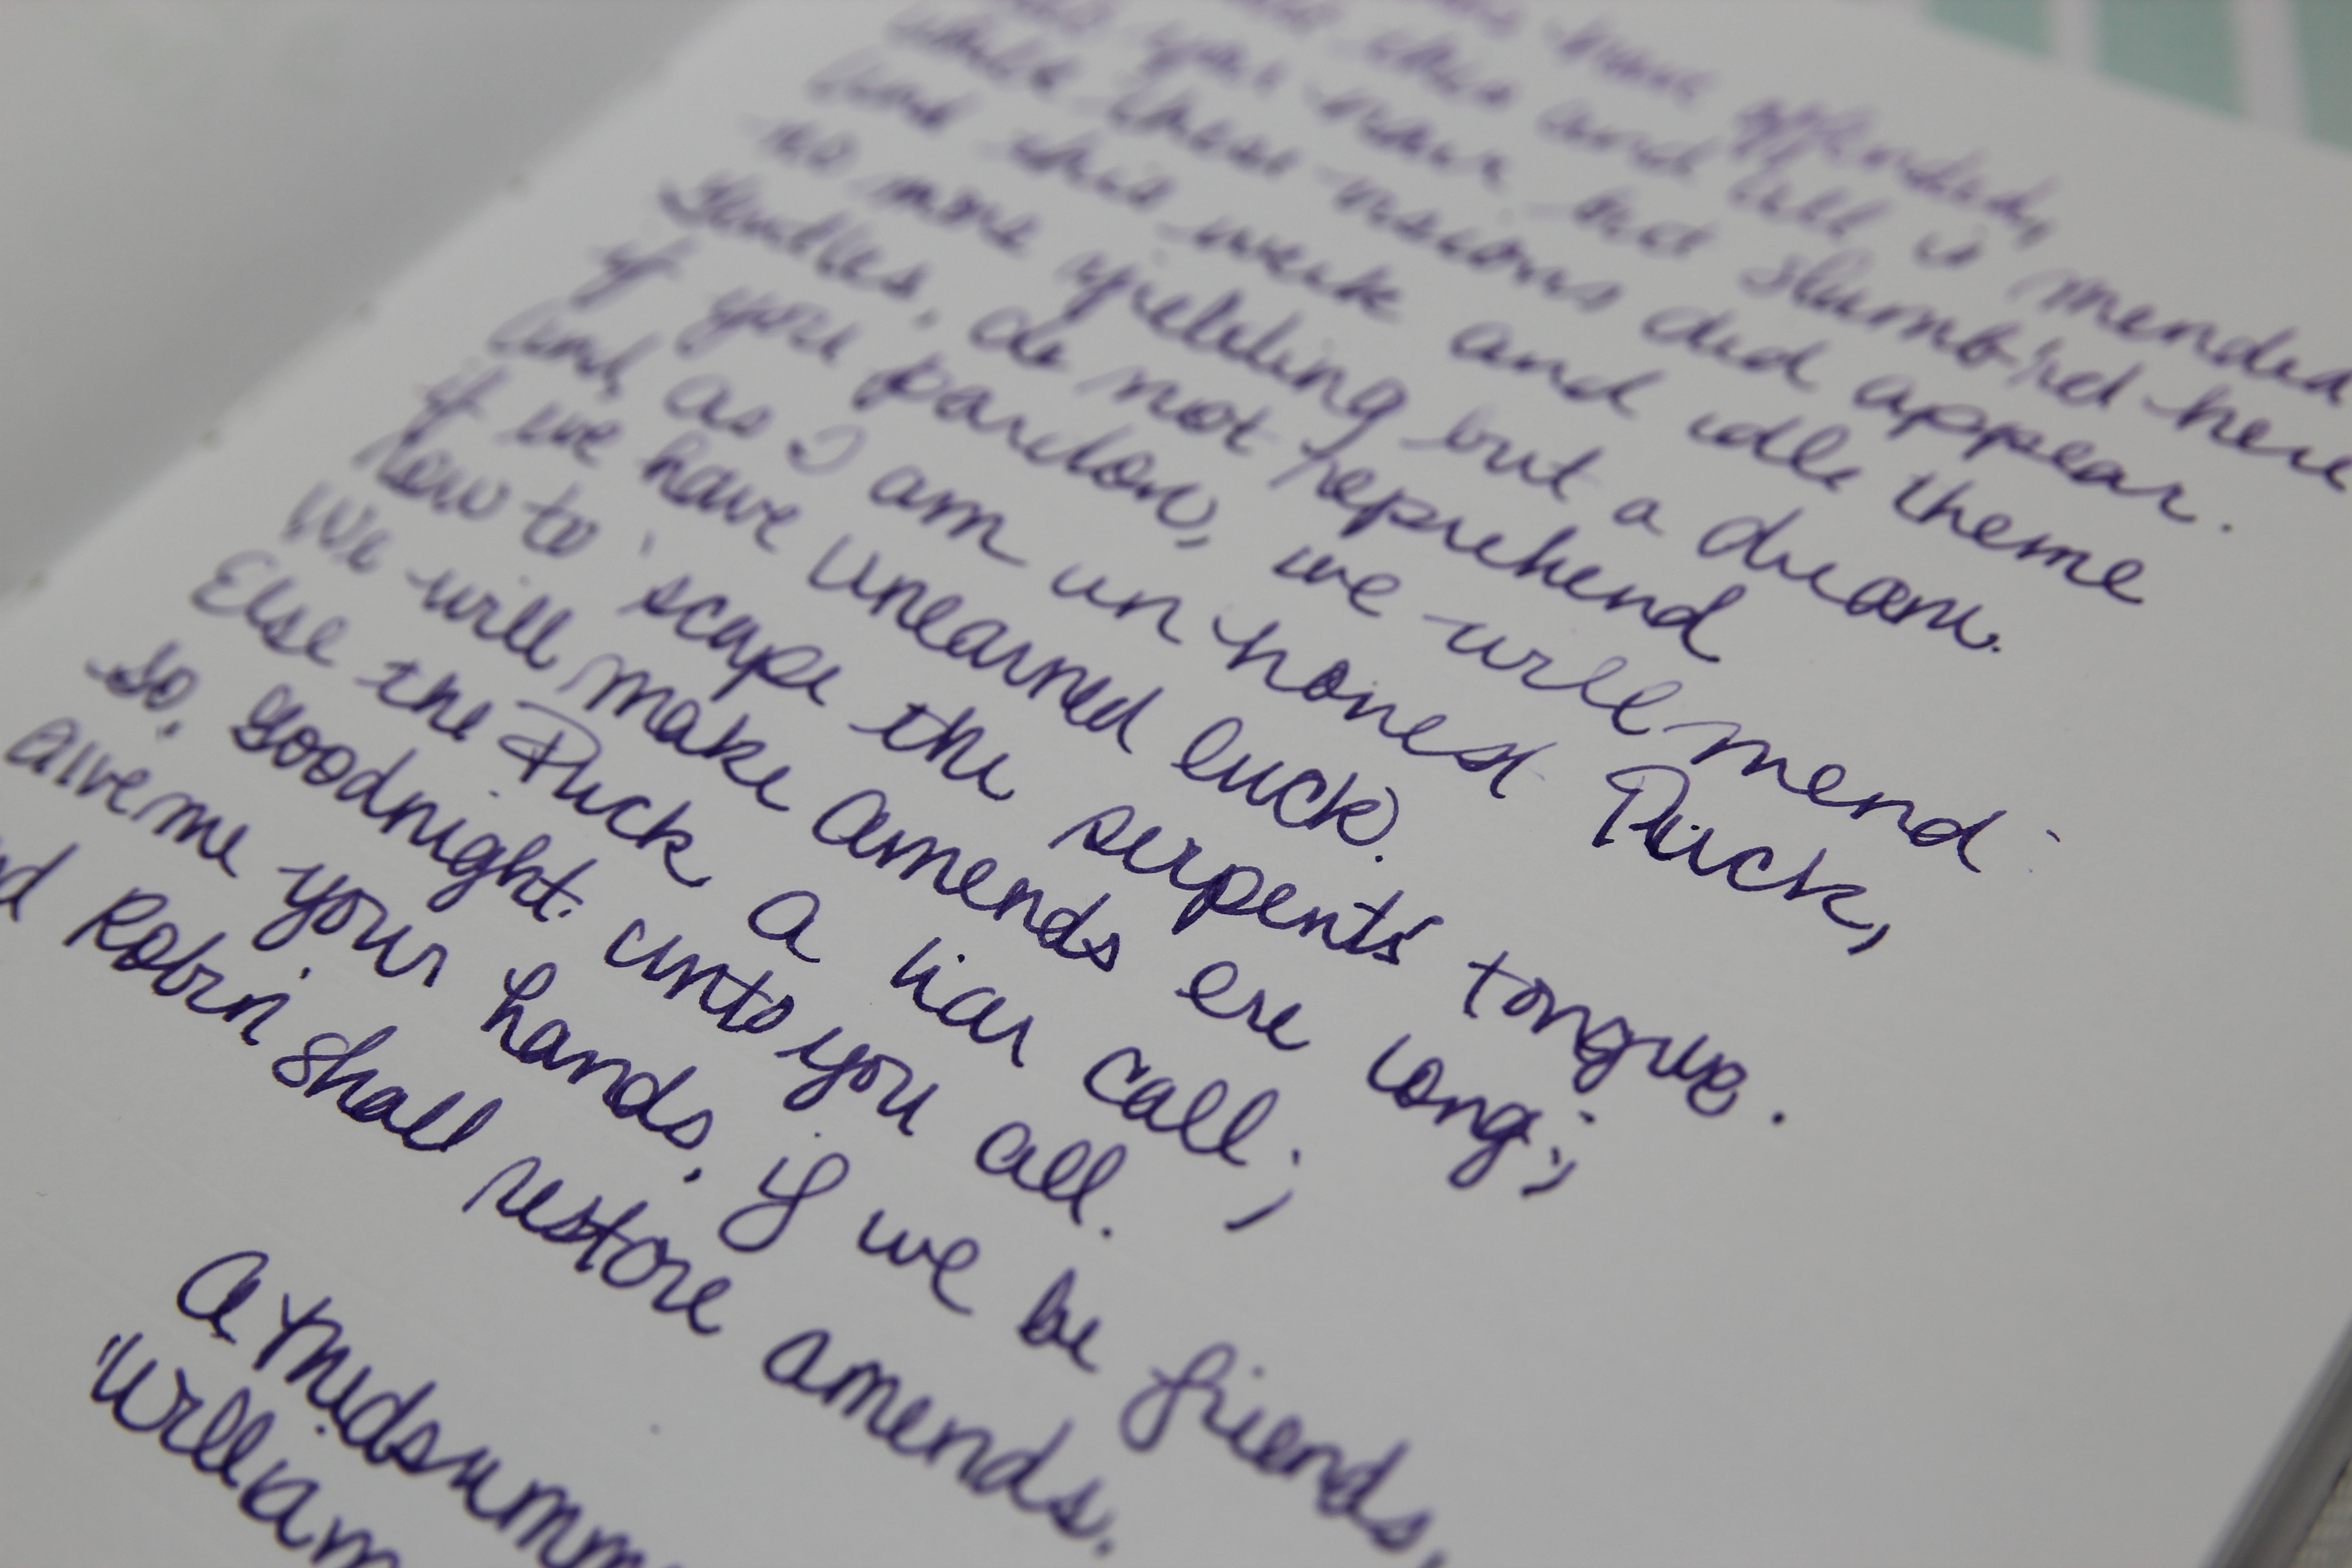 have offended,
this and all is mended
you have but slumb'red here
while these visions did appear.
and this weak and idle theme
no more yielding but a dream.
Gentles, do not reprehend
if you pardon, we will mend:
and, as I am an honest Puck,
if we have unearned luck.
Now to 'scape the serpents' tongue.
We will make amends ere long;
Else the Puck a liar call;
So, goodnight unto you all.
Give me your hands, if we be friends,
Robin shall restore amends.
A Midsumm
William